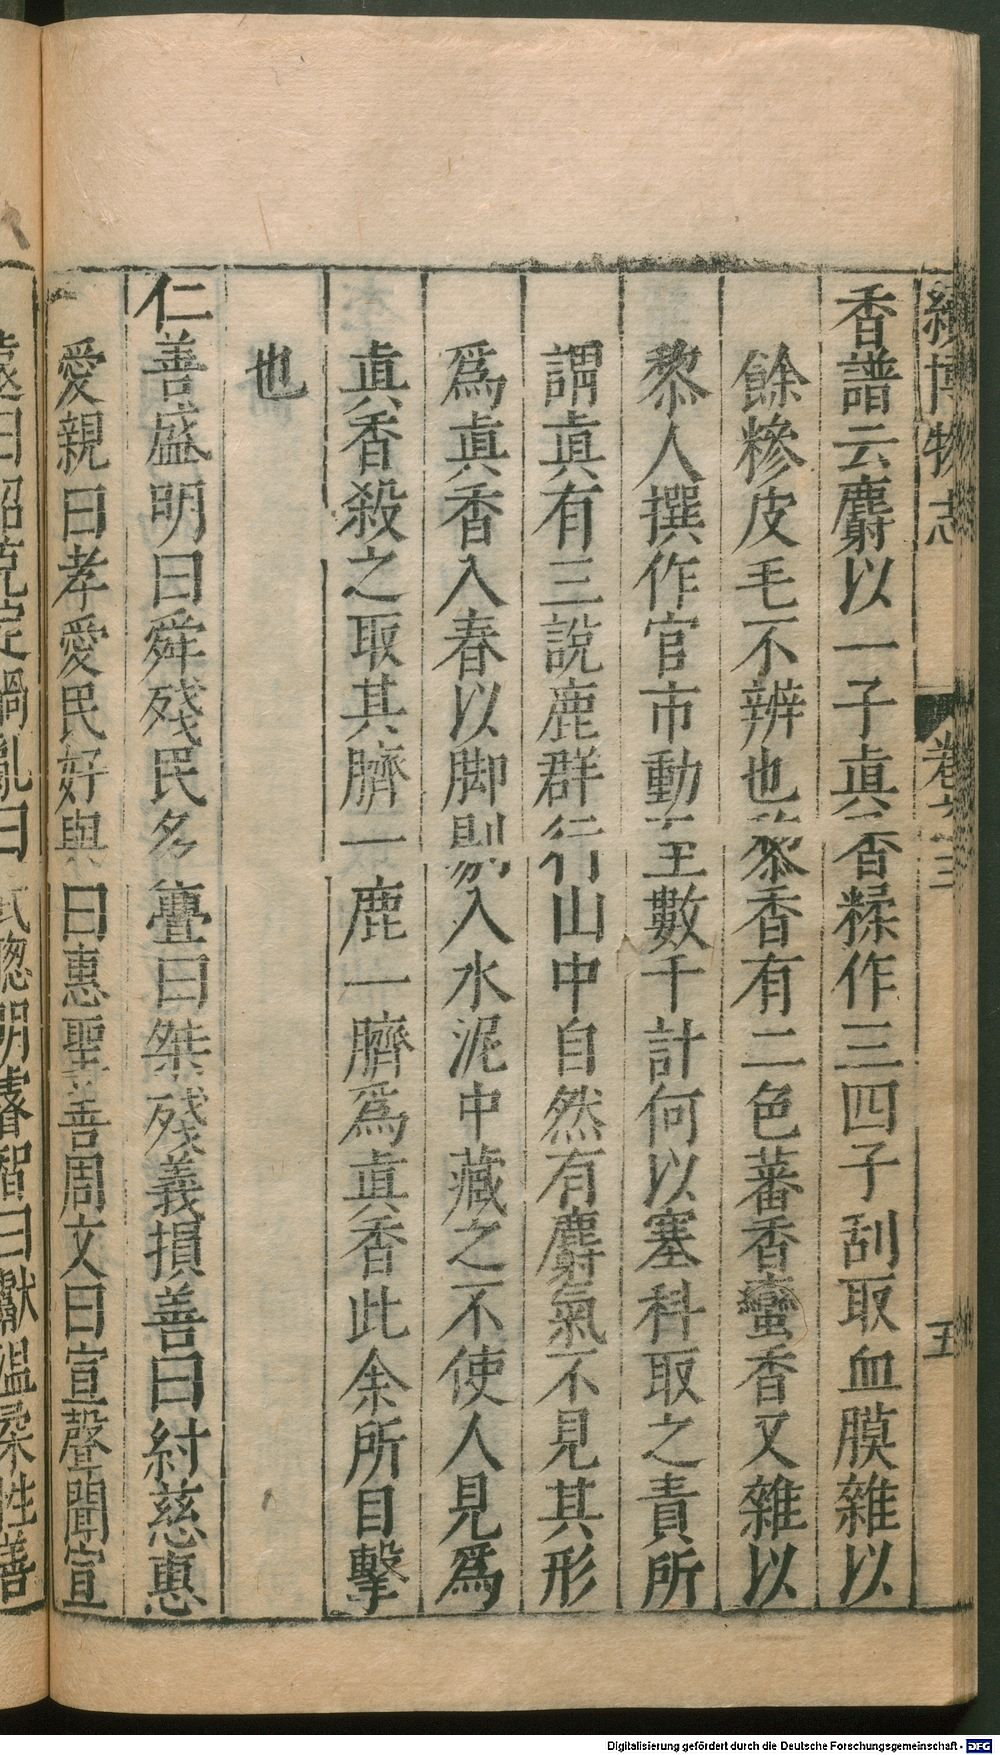 續博物志 卷之三 五
香譜云麝以一子眞香糅作三四子刮取血膜雜以
餘糝皮毛不辨也黎香有二色蕃香蠻香又雜以
黎人撰作官市動至數十計何以塞科取之責所
謂眞有三說鹿群行山中自然有麝氣不見其形
爲眞香入春以脚剔入水泥中藏之不使人見爲
眞香殺之取其臍一鹿一臍爲眞香此余所目擊
也
仁善盛明曰舜殘民多壘曰桀殘義損善曰紂慈惠
愛親曰孝愛民好與曰惠聖善周文曰宣聲聞宣
遠曰昭克定禍亂曰武聰明睿智曰獻溫柔性善
Digitalisierung gefördert durch die Deutsche Forschungsgemeinschaft - DFG